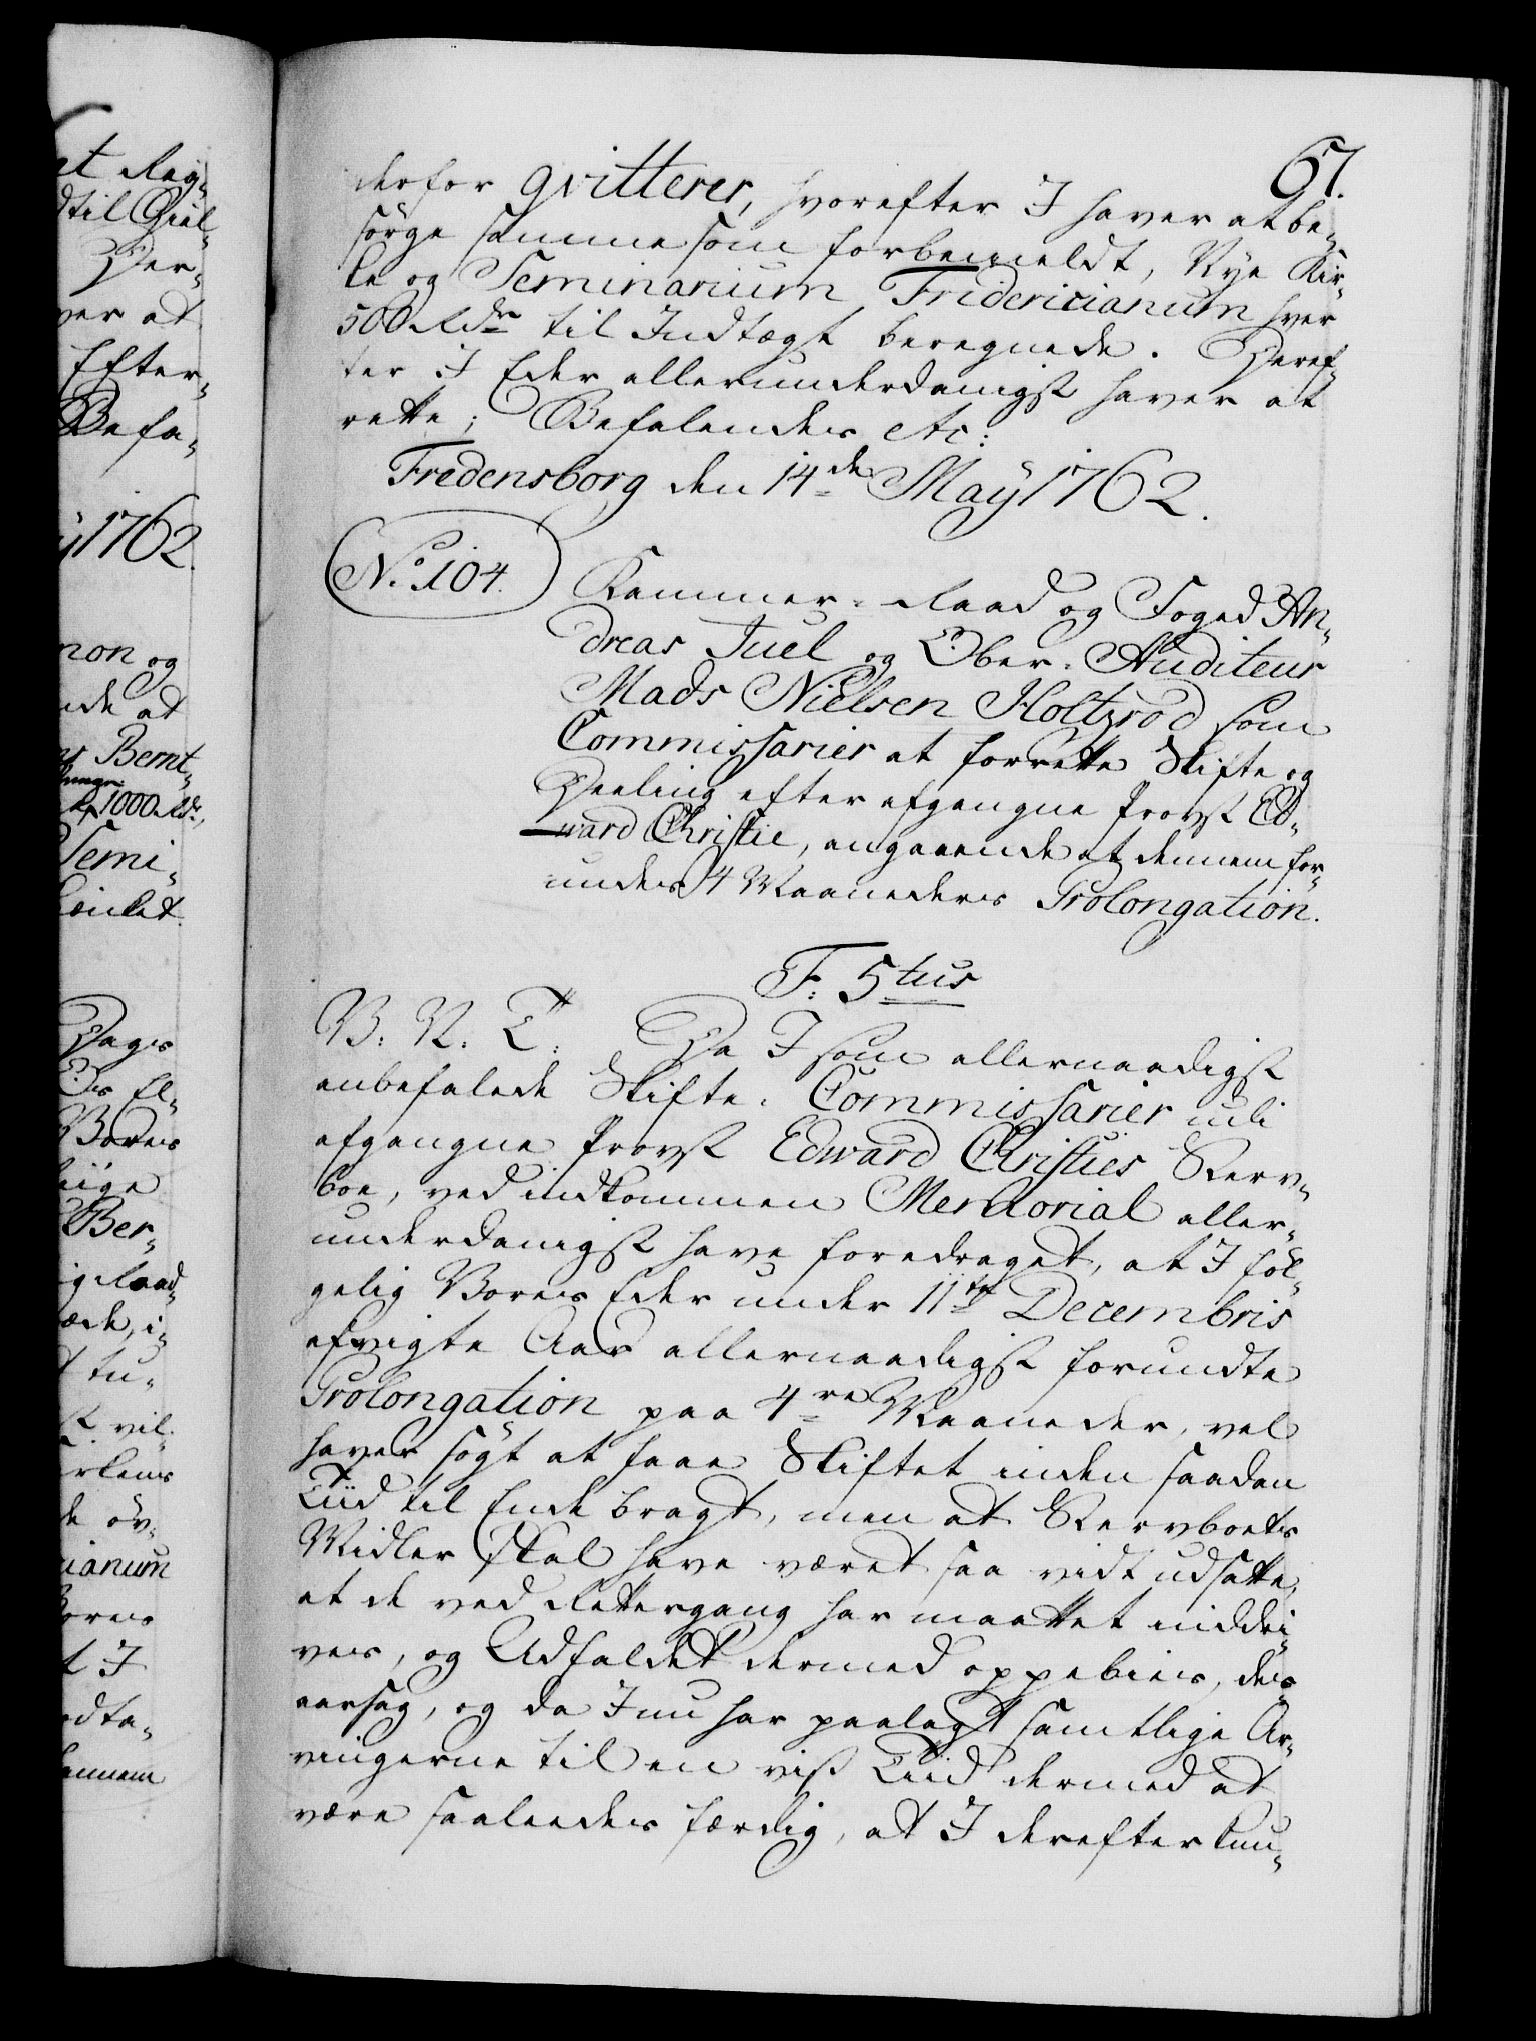 67.
derfor qvitterer, hvorefter I haver at be¬
sørge samme som forbemeldt, Nye Kir¬
ke og Seminarium Fridericianum hver
500 Rdr til Indtægt beregnede. Heref¬
ter I Eder allerunderdanigst haver at
rette; Befalendes etc:
Fredensborg den 14de May 1762.
No. 104.
Kammer-Raad og Foged An¬
dreas Juel og Ober-Auditeur
Mads Nielsen Holtzrod som
Commissarier at forrette Skifte og
Deeling efter afgangne Provst Ed¬
ward Christie, angaaende at dennem for¬
undes 4 Maaneders Prolongation.
F: 5tus
V: V: T: Da I som allernaadigst
anbefalede Skifte-Commissarier udi
afgangne Provst Edward Christies Sterv¬
boe, ved indkommen Memorial aller¬
underdanigst have foredraget, at I føl¬
gelig Vores Eder under 11te Decembris
afvigte Aar allernaadigst forundte
Prolongation paa 4re Maaneder, vel
haver søgt at faae Skiftet inden saadan
Tiid til Ende bragt, men at Stervboets
Midler skal have været saa vidt udsatte,
at de ved Rettergang har maattet inddri¬
ves, og Udfaldet dermed oppebies, des
aarsag, og da I nu har paalagt samtlige Ar¬
vingerne til en viss Tiid dermed at
være saaleedes færdig, at I derefter kun¬
et Reg¬
dtil Giel¬
Der¬
ver at
Efter¬
Befa¬
y 1762.
mon og
nde at
Bernt¬
1000 Rdr,
Semi¬
Dags
El¬
Vores
Ber¬
Raad¬
i¬
tu¬
vil¬
øv¬
cianum
Vores
t I
dta¬
dennem